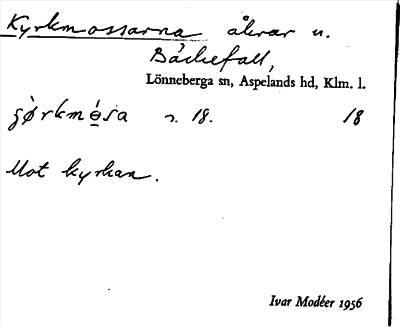 Kyrkmossarna åkrar u.
Bäckefall,
Lönneberga sn, Aspelands hd, Klm. l.
s. 18. 18
Mot kyrkan.
Ivar Modéer 1956